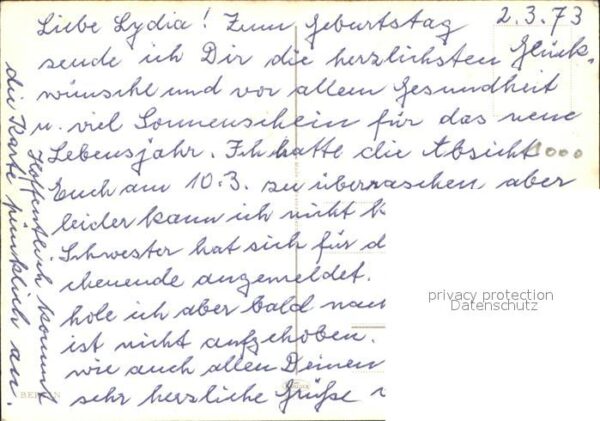 2.3.73
Liebe Lydia! Zum Geburtstag
sende ich Dir die herzlichsten Glück-
wünsche und vor allem Gesundheit
u. viel Sonnenschein für das neue
Lebensjahr. Ich hatte die Absicht
Euch am 10.3. zu überraschen, aber
leider kann ich nicht k
Schwester hat sich für d
chenende angemeldet.
hole ich aber bald nach
ist nicht aufgehoben.
wie auch allen Deinen
sehr herzliche Grüße
Hoffentlich kommt
die Karte pünktlich an.
privacy protection
Datenschutz
BERLIN